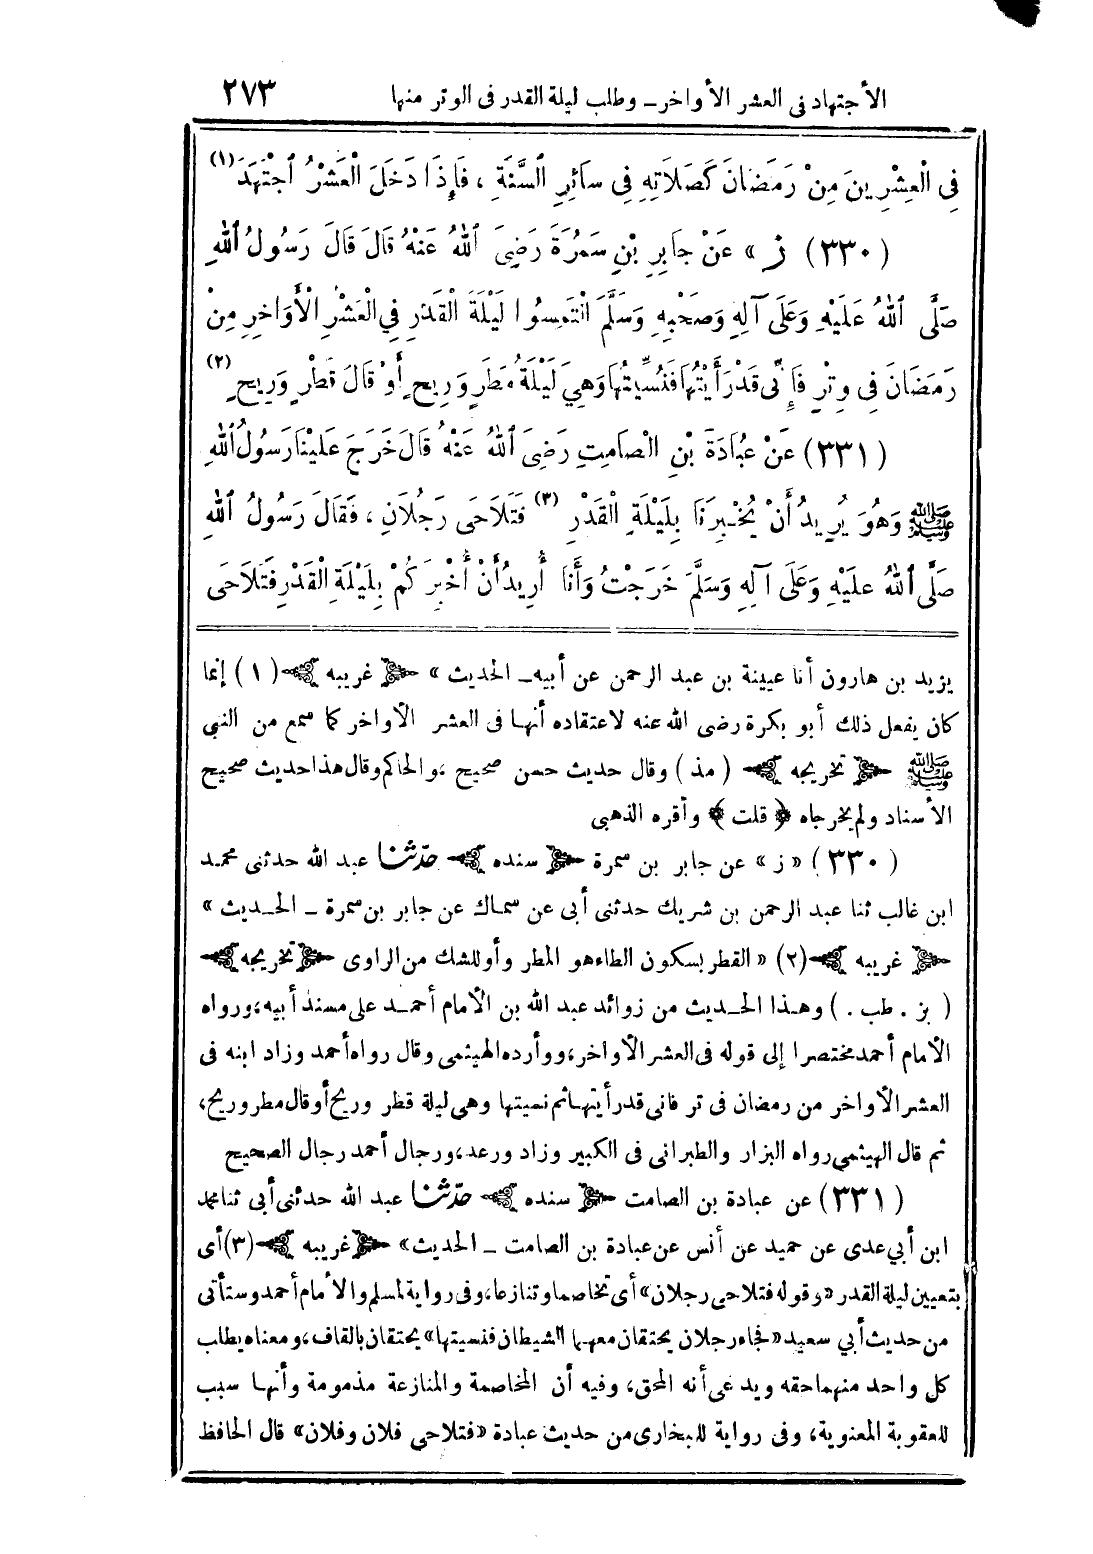 الأجتهاد فى العشر الأواخر ــ وطلب ليلة القدر فى الوتر منها ٢٧٣
فِى الْعِشْرِينَ مِنْ رَمَضَانَ كَصَلَاتِهِ فِى سَائِرِ السَّنَةِ ، فَإِذَا دَخَلَ الْعَشْرُ اجْتَهَدَ (١)
(٣٣٠) ز » عَنْ جَابِرِ بْنِ سَمُرَةَ رَضِىَ اللهُ عَنْهُ قَالَ قَالَ رَسُولُ اللهِ
صَلَّى اللهُ عَلَيْهِ وَعَلَى آلِهِ وَصَحْبِهِ وَسَلَّمَ الْتَمِسُوا لَيْلَةَ الْقَدْرِ فِي الْعَشْرِ الْأَوَاخِرِ مِنْ
رَمَضَانَ فِى وِتْرٍ فَإِنِّى قَدْ رَأَيْتُهَا فَنُسِّيتُهَا وَهِيَ لَيْلَةُ مَطَرٍ وَرِيحٍ أَوْ قَالَ قَطْرٍ وَرِيحٍ (٢)
(٣٣١) عَنْ عُبَادَةَ بْنِ الصَّامِتِ رَضِىَ اللهُ عَنْهُ قَالَ خَرَجَ عَلَيْنَا رَسُولُ اللهِ
ﷺ وَهُوَ يُرِيدُ أَنْ يُخْبِرَنَا بِلَيْلَةِ الْقَدْرِ (٣) فَتَلَاحَى رَجُلَانِ ، فَقَالَ رَسُولُ اللهِ
صَلَّى اللهُ عَلَيْهِ وَعَلَى آلِهِ وَسَلَّمَ خَرَجْتُ وَأَنَا أُرِيدُ أَنْ أُخْبِرَكُمْ بِلَيْلَةِ الْقَدْرِ فَتَلَاحَى
يزيد بن هارون أنا عيينة بن عبد الرحمن عن أبيه ــ الحديث » غريبه (١) إنما
كان يفعل ذلك أبو بكرة رضى الله عنه لاعتقاده أنها فى العشر الأواخر كما سمع من النبى
ﷺ تخريجه ( مذ ) وقال حديث حسن صحيح ، والحاكم وقال هذا حديث صحيح
الأسناد ولم يخرجاه ﴿ قلت ﴾ وأقره الذهبى
(٣٣٠) « ز » عن جابر بن سمرة سنده حدّثنا عبد الله حدثنى محمد
ابن غالب ثنا عبد الرحمن بن شريك حدثنى أبى عن سماك عن جابر بن سمرة ــ الحديث »
غريبه (٢) « القطر بسكون الطاء هو المطر وأو للشك من الراوى تخريجه
( بز . طب . ) وهذا الحديث من زوائد عبد الله بن الأمام أحمد على مسند أبيه ، ورواه
الأمام أحمد مختصرا إلى قوله فى العشر الأواخر ، وو أرده الهيثمى وقال رواه أحمد وزاد ابنه فى
العشر الأواخر من رمضان فى تر فانى قد رأيتها ثم نسيتها وهى ليلة قطر وريح أو قال مطر وريح ،
ثم قال الهيثمى رواه البزار والطبرانى فى الكبير وزاد ورعد ، ورجال أحمد رجال الصحيح
(٣٣١) عن عبادة بن الصامت سنده حدّثنا عبد الله حدثنى أبي ثنا محمد
ابن أبي عدى عن حميد عن أنس عن عبادة بن الصامت ــ الحديث » غريبه (٣) أى
بتعيين ليلة القدر « وقوله فتلاحى رجلان » أى تخاصما وتنازعا ، وفى رواية لمسلم والأمام أحمد وستأتى
من حديث أبي سعيد « فجاء رجلان يحتقان معهما الشيطان فنسيتها » يحتقان بالقاف ، ومعناه يطلب
كل واحد منهما حقه ويدعى أنه المحق ، وفيه أن المخاصمة والمنازعة مذمومة وأنها سبب
للعقوبة المعنوية ، وفى رواية للبخارى من حديث عبادة « فتلاحى فلان وفلان » قال الحافظ